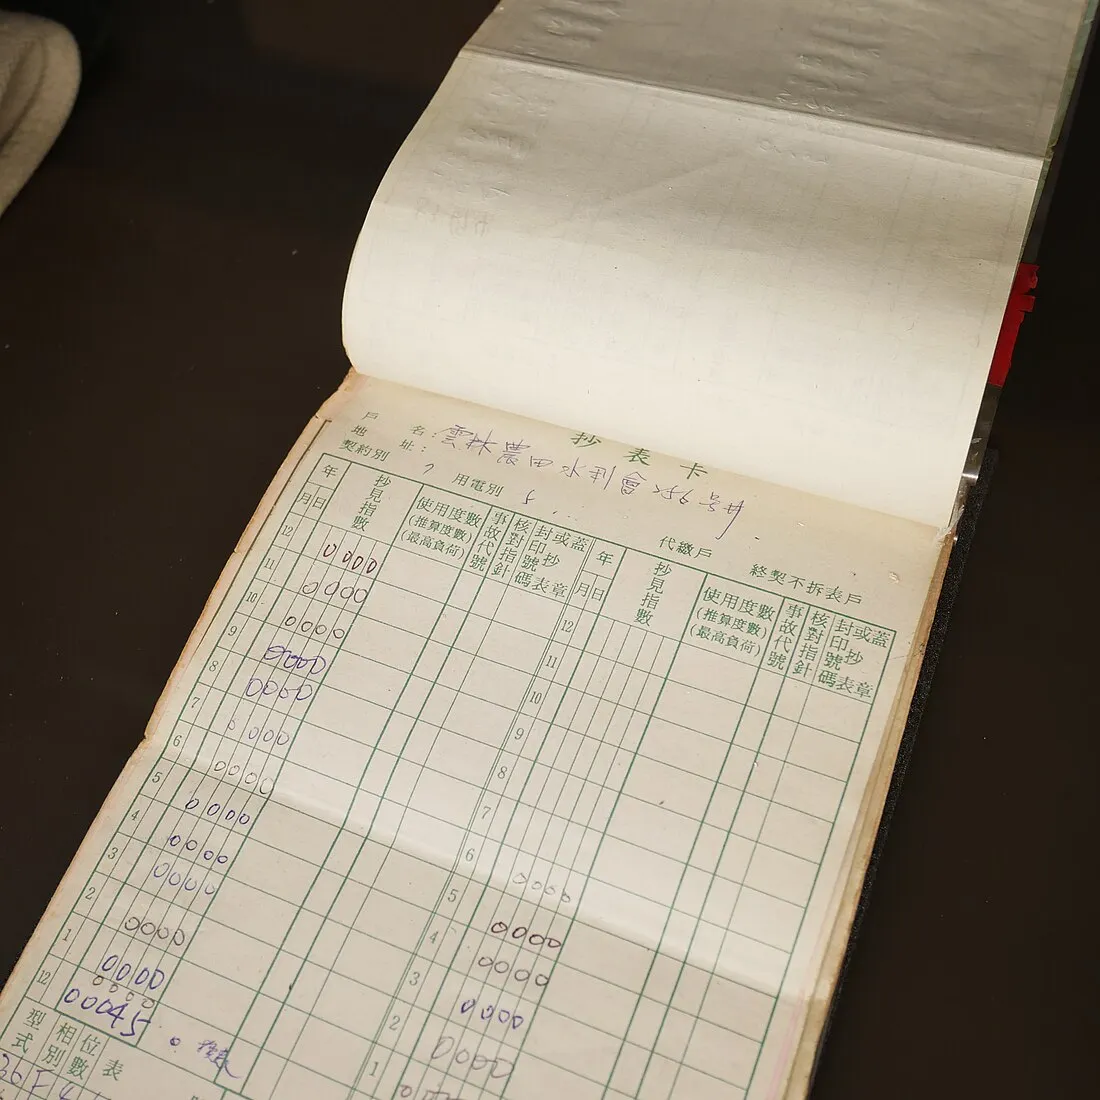 抄表卡
戶名：雲林農田水利會256号井
地址：
契約別 用電別 代繳戶 終契不拆表戶
年 月 日 抄見指數 使用度數 (推算度數) (最高負荷) 事故代號 核對指針 封印號碼 或抄表 蓋章 年 月 日 抄見指數 使用度數 (推算度數) (最高負荷) 事故代號 核對指針 封印號碼 或抄表 蓋章
12 0000 12
11 0000 11
10 0000 10
9 0000 9
8 0000 8
7 0000 7
6 0000 6 0000
5 0000 5 0000
4 0000 4 0000
3 0000 3 0000
2 0000 2 0000
1 0000 1
12 0000
00045
型式 相別 位數 表